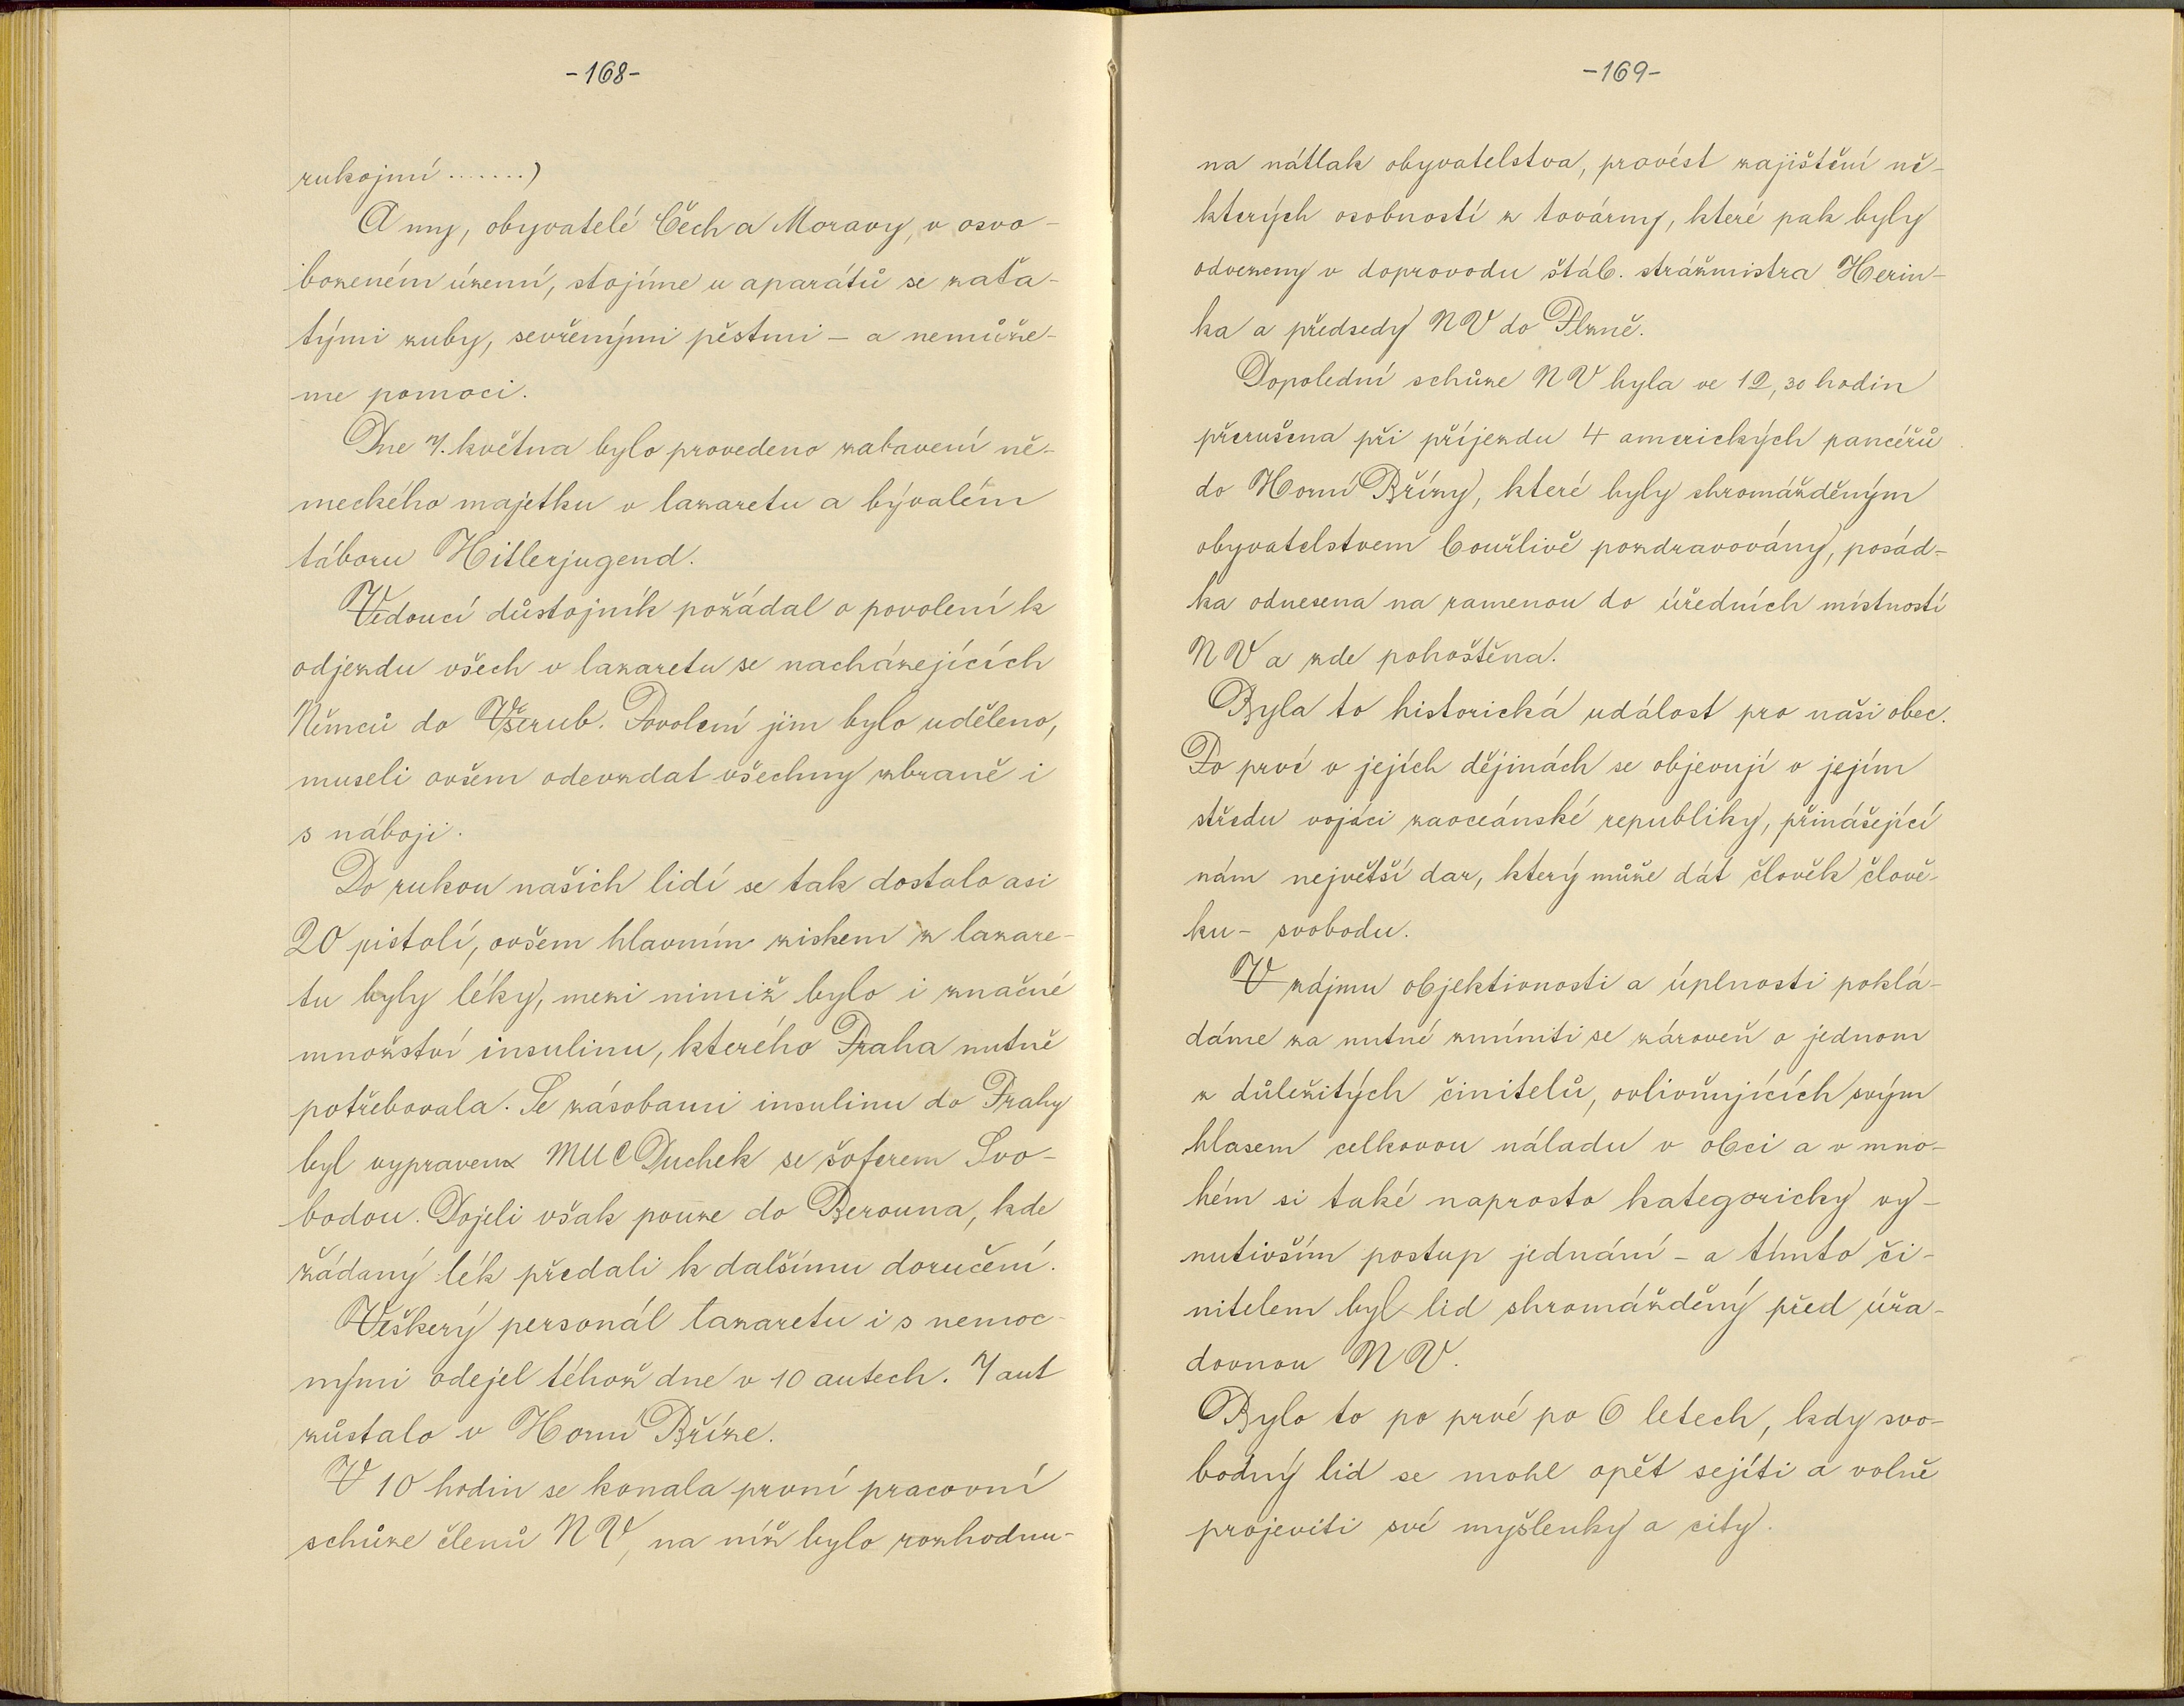 -168-
rukojmí .......)
A my, obyvatelé Čech a Moravy, v osvo-
bozeném území, stojíme u aparátů se zaťa-
tými zuby, sevřenými pěstmi - a nemůže-
me pomoci.
Dne 7. května bylo provedeno zabavení ně-
meckého majetku v lazaretu a bývalém
táboru Hitlerjugend.
Vedoucí důstojník požádal o povolení k
odjezdu všech v lazaretu se nacházejících
Němců do Všerub. Povolení jim bylo uděleno,
museli ovšem odevzdat všechny zbraně i
s náboji.
Do rukou našich lidí se tak dostalo asi
20 pistolí, ovšem hlavním ziskem z lazare-
tu byly léky, mezi nimiž bylo i značné
množství insulinu, kterého Praha nutně
potřebovala. Se zásobami insulinu do Prahy
byl vypraven MUC Duchek se šoferem Svo-
bodou. Dojeli však pouze do Berouna, kde
žádaný lék předali k dalšímu doručení.
Veškerý personál lazaretu i s nemoc-
nými odejel téhož dne v 10 autech. 7 aut
zůstalo v Horní Bříze.
V 10 hodin se konala první pracovní
schůze členů NV, na níž bylo rozhodnu-
-169-
na nátlak obyvatelstva, provést zajištění ně-
kterých osobností z továrny, které pak byly
odvezeny v doprovodu štáb. strážmistra Herin-
ka a předsedy NV do Plzně.
Dopolední schůze NV byla ve 12,30 hodin
přerušena při příjezdu 4 amerických pancéřů
do Horní Břízy, které byly shromážděným
obyvatelstvem bouřlivě pozdravovány, posád-
ka odnesena na ramenou do úředních místností
NV a zde pohoštěna.
Byla to historická událost pro naši obec.
Po prvé v jejích dějinách se objevují v jejím
středu vojáci zaoceánské republiky, přinášející
nám největší dar, který může dát člověk člově-
ku - svobodu.
V zájmu objektivnosti a úplnosti poklá-
dáme za nutné zmíniti se zároveň o jednom
z důležitých činitelů, ovlivňujících svým
hlasem celkovou náladu v obci a v mno-
hém si také naprosto kategoricky vy-
nutivším postup jednání - a tímto či-
nitelem byl lid shromážděný před úřa-
dovnou NV.
Bylo to po prvé po 6 letech, kdy svo-
bodný lid se mohl opět sejíti a volně
projeviti své myšlenky a city.